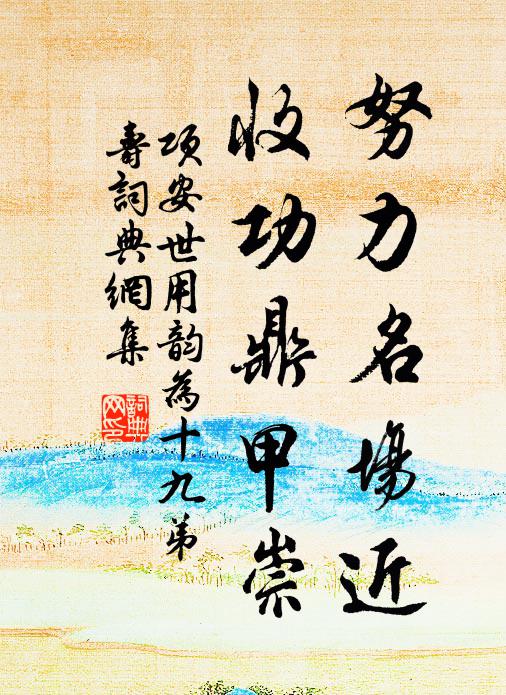 努力名場近
收功鼎甲崇
項安世用韵為十九弟
壽詞典網集
詞典網印